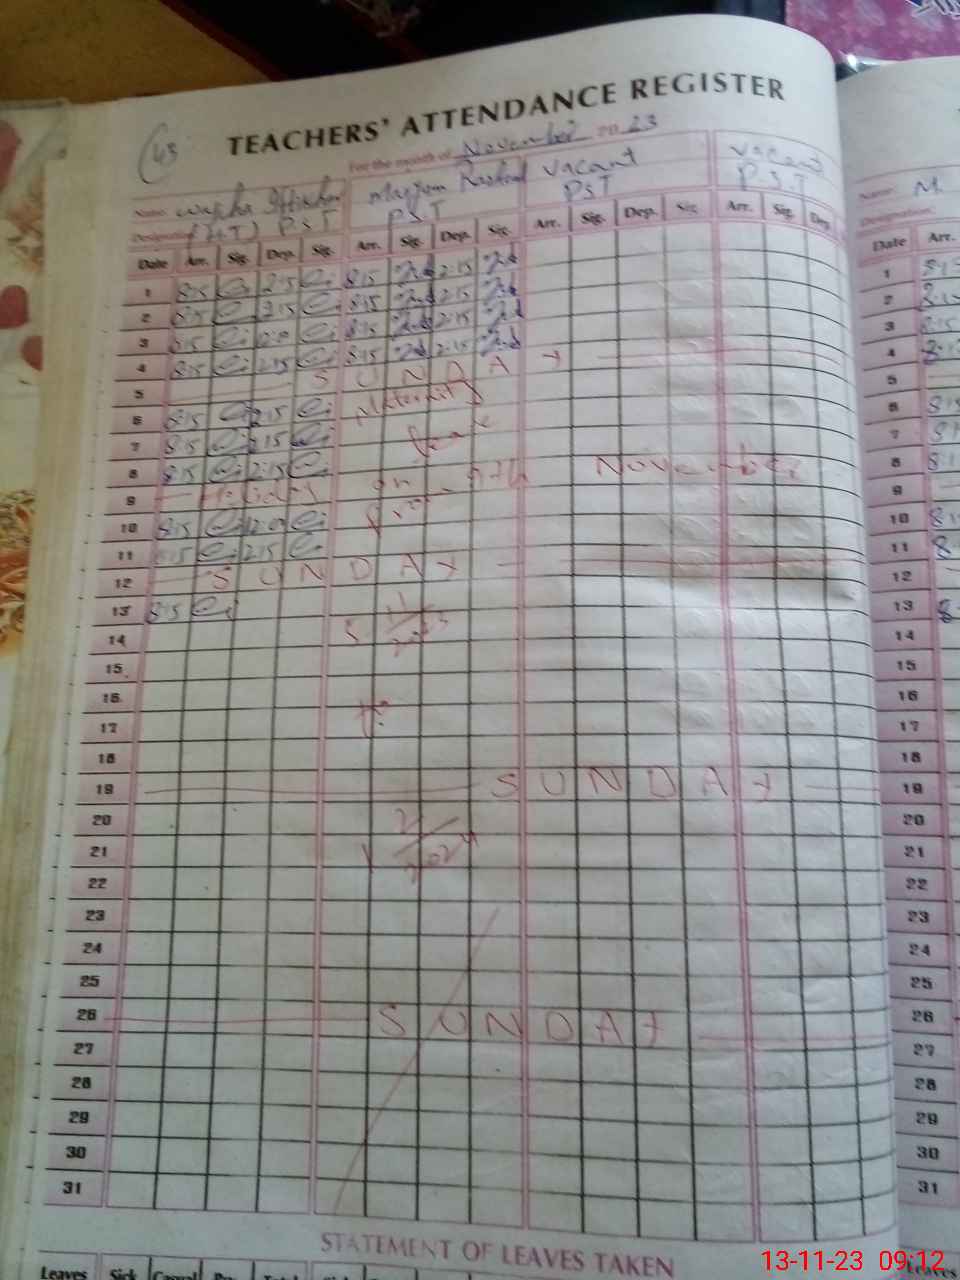 43
TEACHERS' ATTENDANCE REGISTER
For the month of November 2023
Name Maryam Rashed vacant vacant
Designation P.S.T P.S.T PST P.S.T
Date Arr. Sig. Dep. Sig. Arr. Sig. Dep. Sig. Arr. Sig. Dep. Sig. Arr. Sig. Dep.
1 8:15 2:15 8:15 2:15
2 8:15 2:15 8:15 2:15
3 8:15 8:15 2:15
4 8:15 2:15 8:15 2:15
5 SUNDAY
6 8:15 2:15 Maternity
7 8:15 2:15 leave
8 8:15 2:15 on November
9 Holiday from 6th
10 8:15 12:00
11 8:15 2:15
12 SUNDAY
13 8:15 11
14 2023
15
16
17 to
18
19 SUNDAY
20 2
21 2024
22
23
24
25
26 SUNDAY
27
28
29
30
31
STATEMENT OF LEAVES TAKEN
Leaves Sick Casual Total
Name M.
Designation
Date Arr.
1 8:15
2 8:15
3 8:15
4
5
6 8:15
7
8
9
10
11
12
13
14
15
16
17
18
19
20
21
22
23
24
25
26
27
28
29
30
31
Leaves
13-11-23 09:12